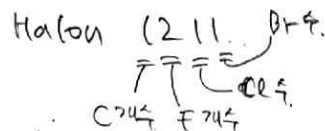 Halon 1211
Br수
Cl수
C개수 F개수